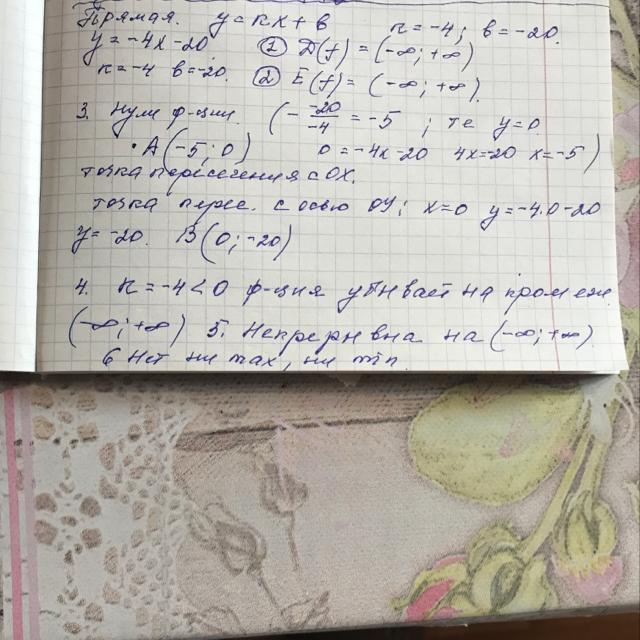 Прямая. y = kx + в k = -4; в = -20.
y = -4x - 20 ① D(f) = (-∞; +∞)
k = -4 в = -20. ② E(f) = (-∞; +∞)
3. Нули ф-ции. (- -20/-4 = -5 ; те y = 0
· A (-5; 0) 0 = -4x - 20 4x = -20 x = -5)
точка пересечения с OX.
точка перес. с осью OY; x = 0 y = -4·0 - 20
y = -20. B (0; -20)
4. k = -4 < 0 ф-ция убывает на промеж.
(-∞; +∞) 5. Непрерывна на (-∞; +∞).
6 Нет ни max, ни min.